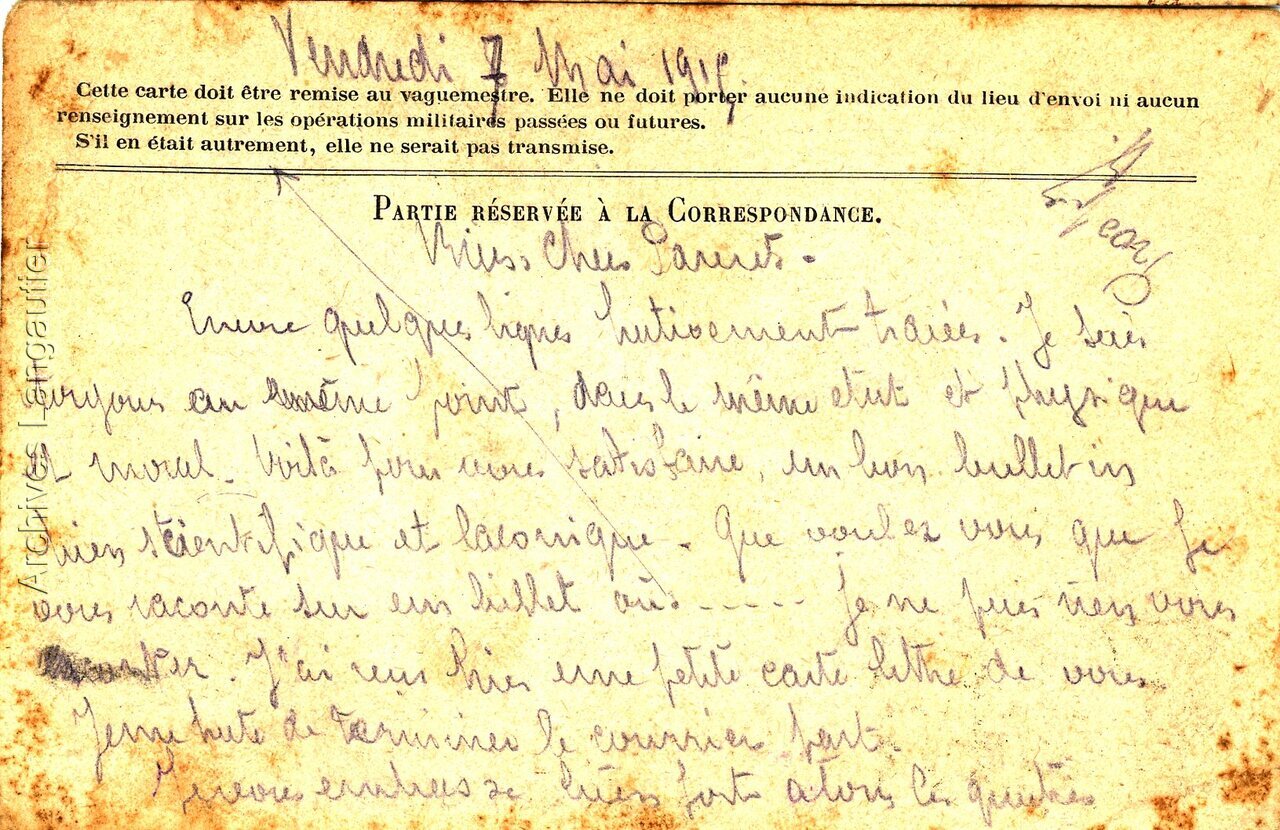 Vendredi 7 Mai 1915.
Cette carte doit être remise au vaguemestre. Elle ne doit porter aucune indication du lieu d'envoi ni aucun
renseignement sur les opérations militaires passées ou futures.
S'il en était autrement, elle ne serait pas transmise.
PARTIE RÉSERVÉE À LA CORRESPONDANCE.
Biens Chers Parents.
Encore quelques lignes hativement tracées. Je suis
toujours au même point, dans le même etat et physique
et moral. Voilà pour vous satisfaire, un bon bulletin
bien scientifique et laconique. Que voulez vous que je
vous raconte sur un billet où ----- Je ne puis rien vous
raconter. J'ai reçu hier une petite carte lettre de vous.
Je me hate de terminer le courrier part.
Je vous embrasse bien fort a tous les quatres
Archives Langauffer